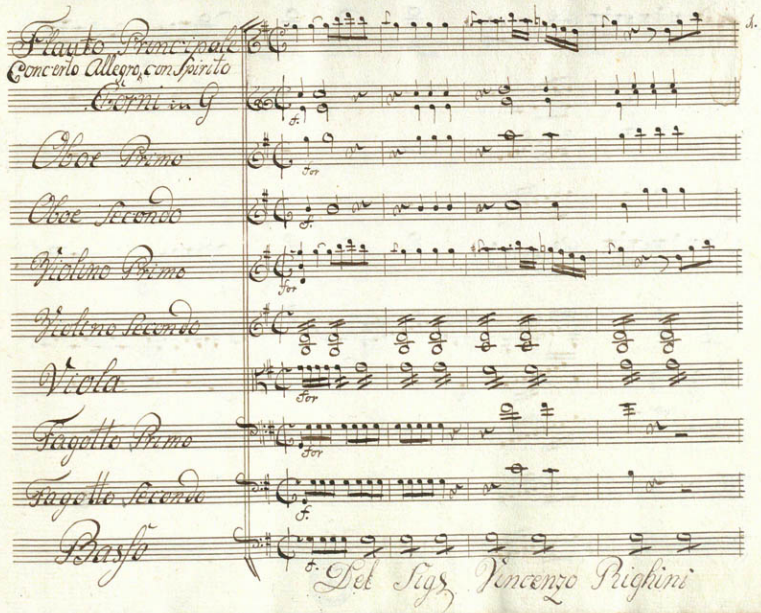 1.
Flauto Principale
Concerto Allegro con Spirito
Corni in G
f.
Oboe Primo
for
Oboe Secondo
f.
Violino Primo
for
Violino Secondo
Viola
for
Fagotto Primo
for
Fagotto Secondo
f.
Basso
f.
Del Sigr Vincenzo Righini